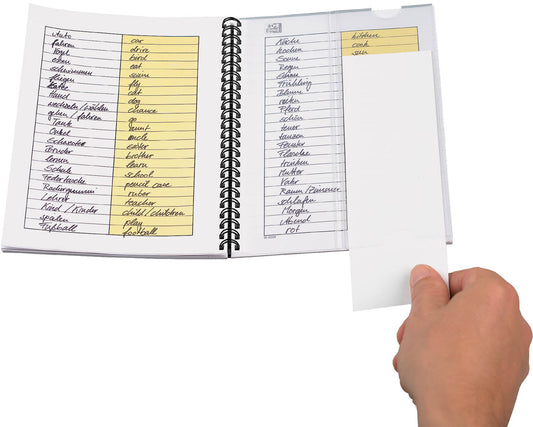 Auto car
fahren drive
Vogel bird
essen eat
schwimmen swim
fliegen fly
Katze cat
Hund dog
wechseln/wählen chance
gehen / fahren go
Tante aunt
Onkel uncle
Schwester
Bruder brother
lernen learn
Schule school
Federtasche pencil case
Radiergummi ruber
Lehrer teacher
Kind / Kinder child / children
spielen play
Fußball football
Küche kitchen
kochen cook
Sonne sun
Regen
Frühling
Blume
Pferd
schön
teuer
tanzen
Fenster
Flasche
trinken
Mutter
Vater
Raum / Zimmer
schlafen
Morgen
Abend
rot